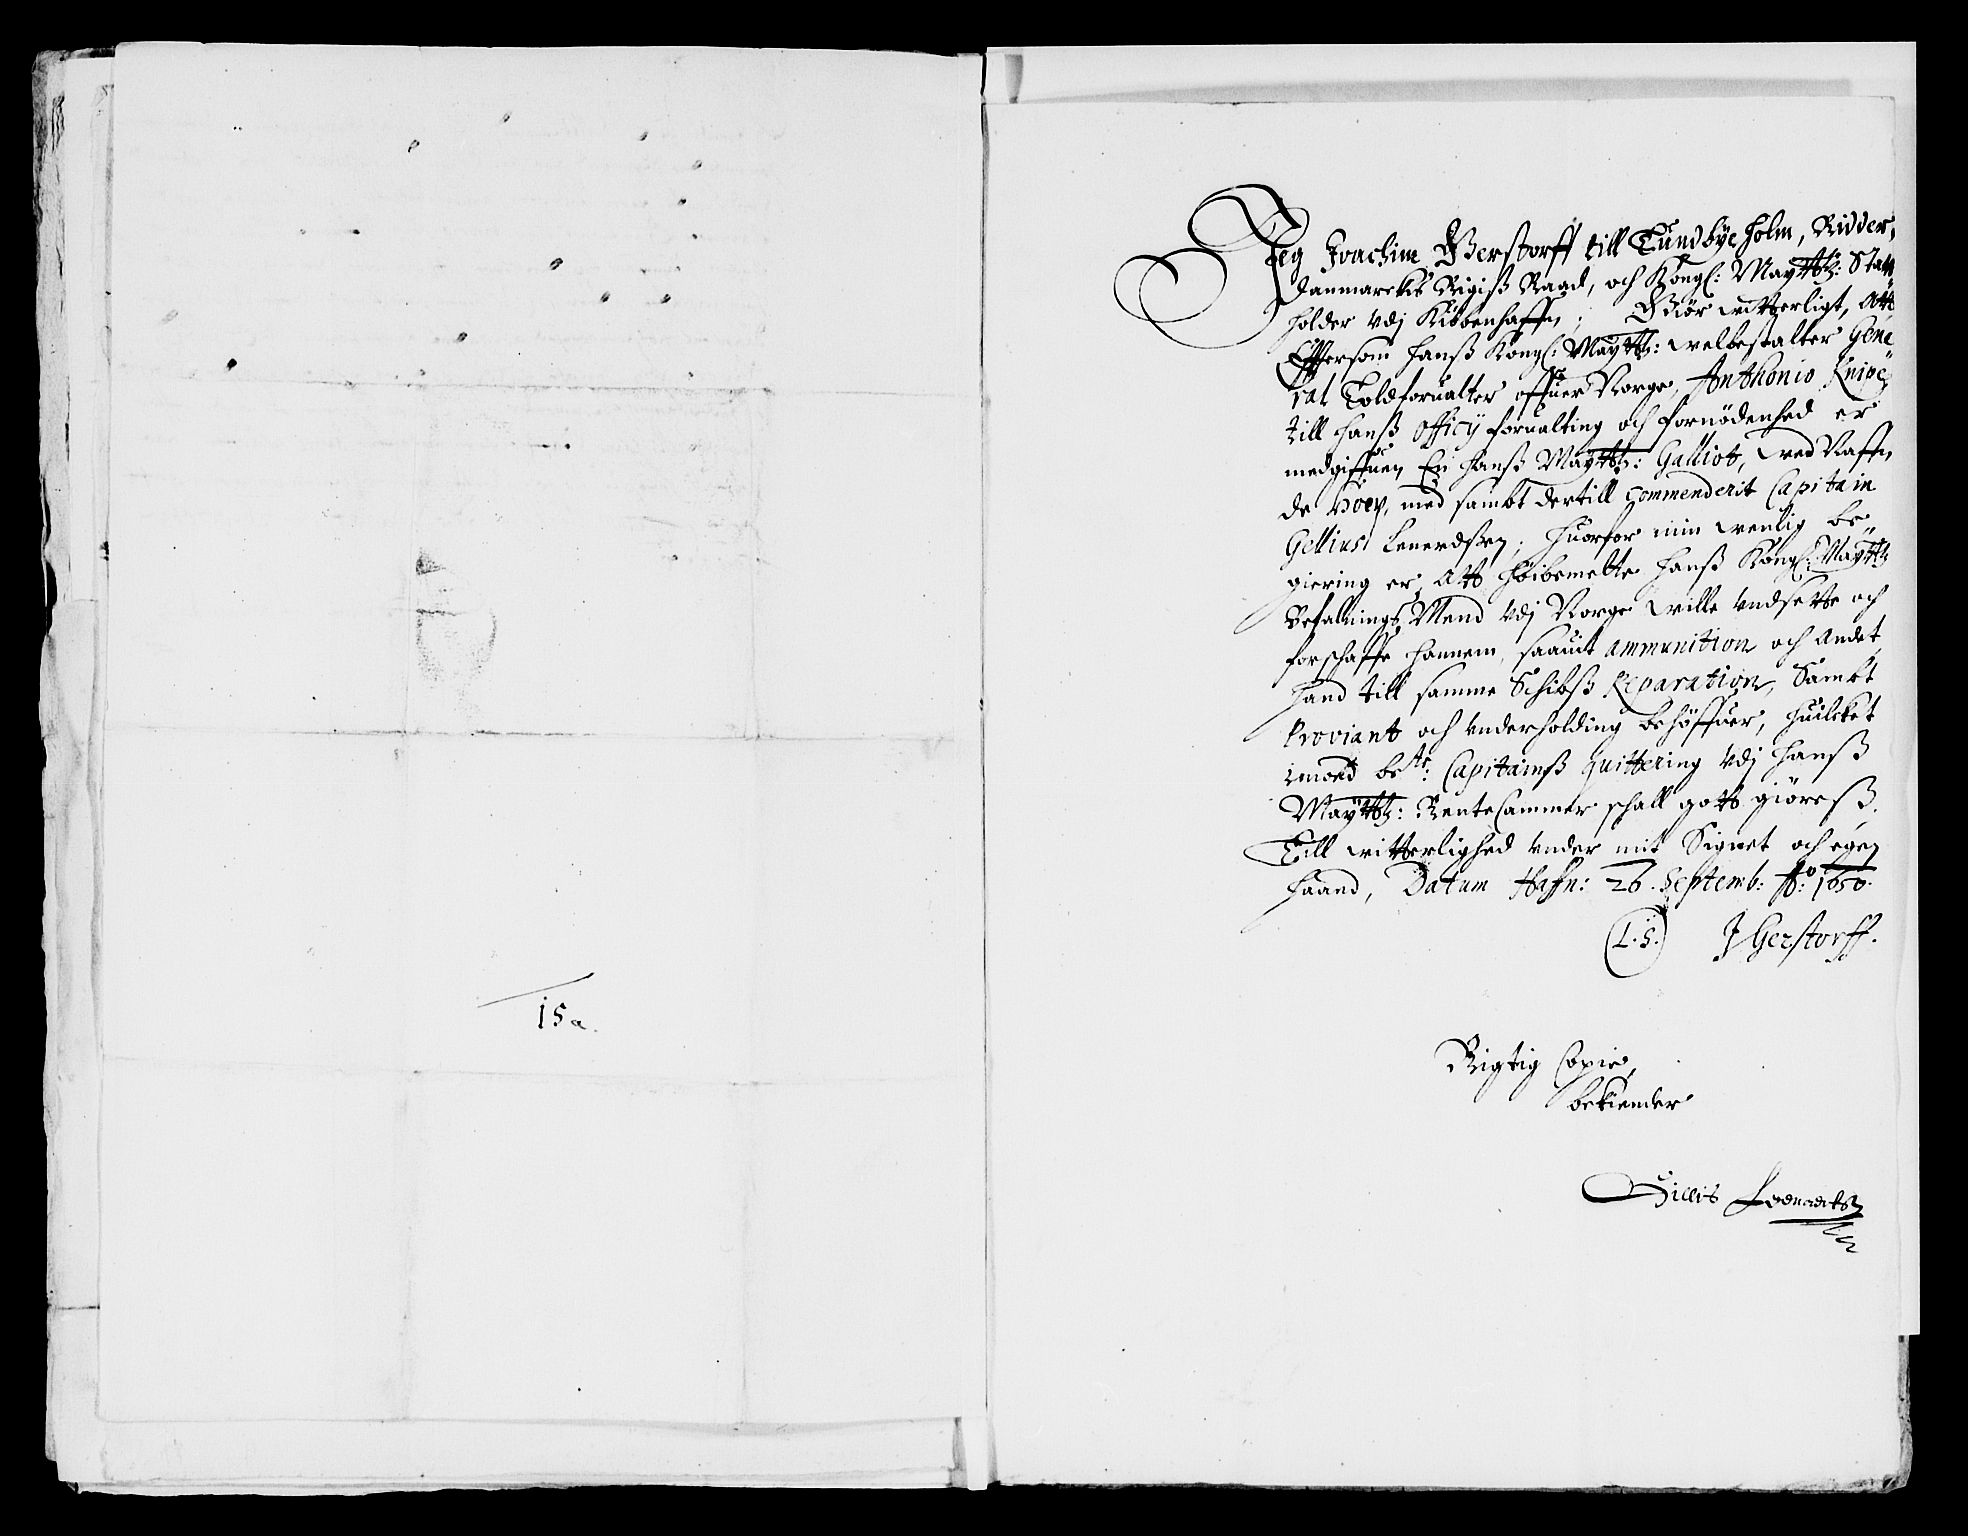 15a.
Jeg Joachim Gerstorff till Tundbÿeholm, Ridder,
Danmarckis Rigiß Raad, och Kongl: Maÿttz: Statt
holder vdj Kiöbenhaffn; Giör witterligt, att
Efftersom hanß Kongl: Maÿttz: welbestalter Gene
ral Toldforualter offuer Norge, Anthonio Knipe,
till hanß Officij forualting och fornödenhed er
medgiffuen En hanß Maÿttz: Galliot, wed Naffn
de Hoep, med sambt dertill Commenderit Capitain
Gellius Lenerdßen; Huorfor min wenlig be¬
giering er, att höibemelte hanß Kongl: Maÿttz
Befalnings Mend vdj Norge wille vndsette och
forschaffe hannem, saauit ammunition och andet
hand till samme Schibß Reparation, Sambt
Proviant och vnderholding behöffuer, huilcket
imod bete: Capitainß quittering vdj hanß
Maÿttz: RenteCammer schall gott giöreß.
Till witterlighed vnder mit Signet och egen
haand, Datum Haffn: 26. Septemb: Ao: 1650.
(L.S.) J Gerstorff.
Rigtig Copie,
bekiender
Gillis Leenaerts